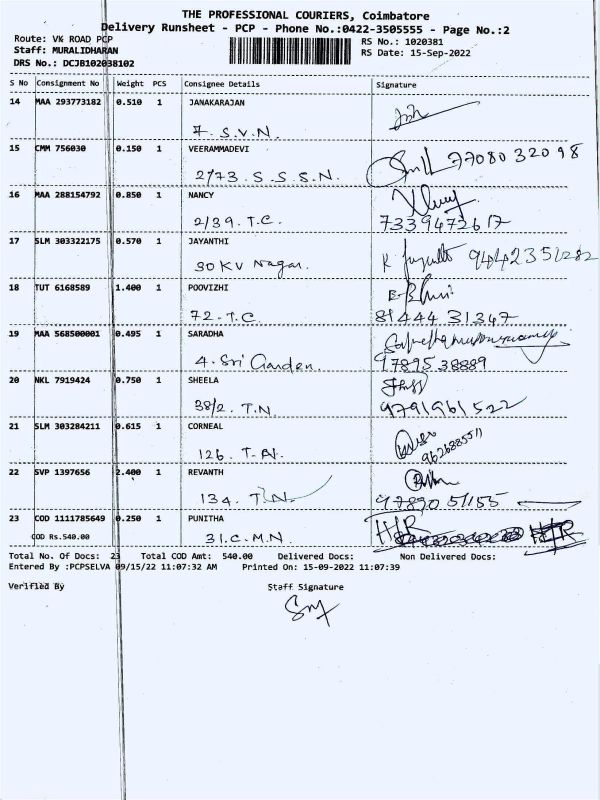 THE PROFESSIONAL COURIERS, Coimbatore
Delivery Runsheet - PCP - Phone No.:0422-3505555 - Page No.:2
Route: VK ROAD PCP
RS No.: 1020381
Staff: MURALIDHARAN
RS Date: 15-Sep-2022
DRS No.: DCJB102038102
S No Consignment No Weight PCS Consignee Details Signature
14 MAA 293773182 0.510 1 JANAKARAJAN
7. S.V.N.
15 CMM 756030 0.150 1 VEERAMMADEVI
2/73. S.S.S.N. 77080 32098
16 MAA 288154792 0.850 1 NANCY
2/39. T.C. 7339472617
17 SLM 303322175 0.570 1 JAYANTHI
30 KV Nagar. 9442351282
18 TUT 6168589 1.400 1 POOVIZHI
72. T.C 81444 31347
19 MAA 568500001 0.495 1 SARADHA
4. Sri Garden. 97895 38889
20 NKL 7919424 0.750 1 SHEELA
38/2. T.N. 9791961522
21 SLM 303284211 0.615 1 CORNEAL
126. T.A. 9626885511
22 SVP 1397656 2.400 1 REVANTH
134. T.N. 97890 51155
23 COD 1111785649 0.250 1 PUNITHA
COD Rs.540.00 31.C.M.N.
Total No. Of Docs: 23 Total COD Amt: 540.00 Delivered Docs: Non Delivered Docs:
Entered By :PCPSELVA 09/15/22 11:07:32 AM Printed On: 15-09-2022 11:07:39
Verified By Staff Signature